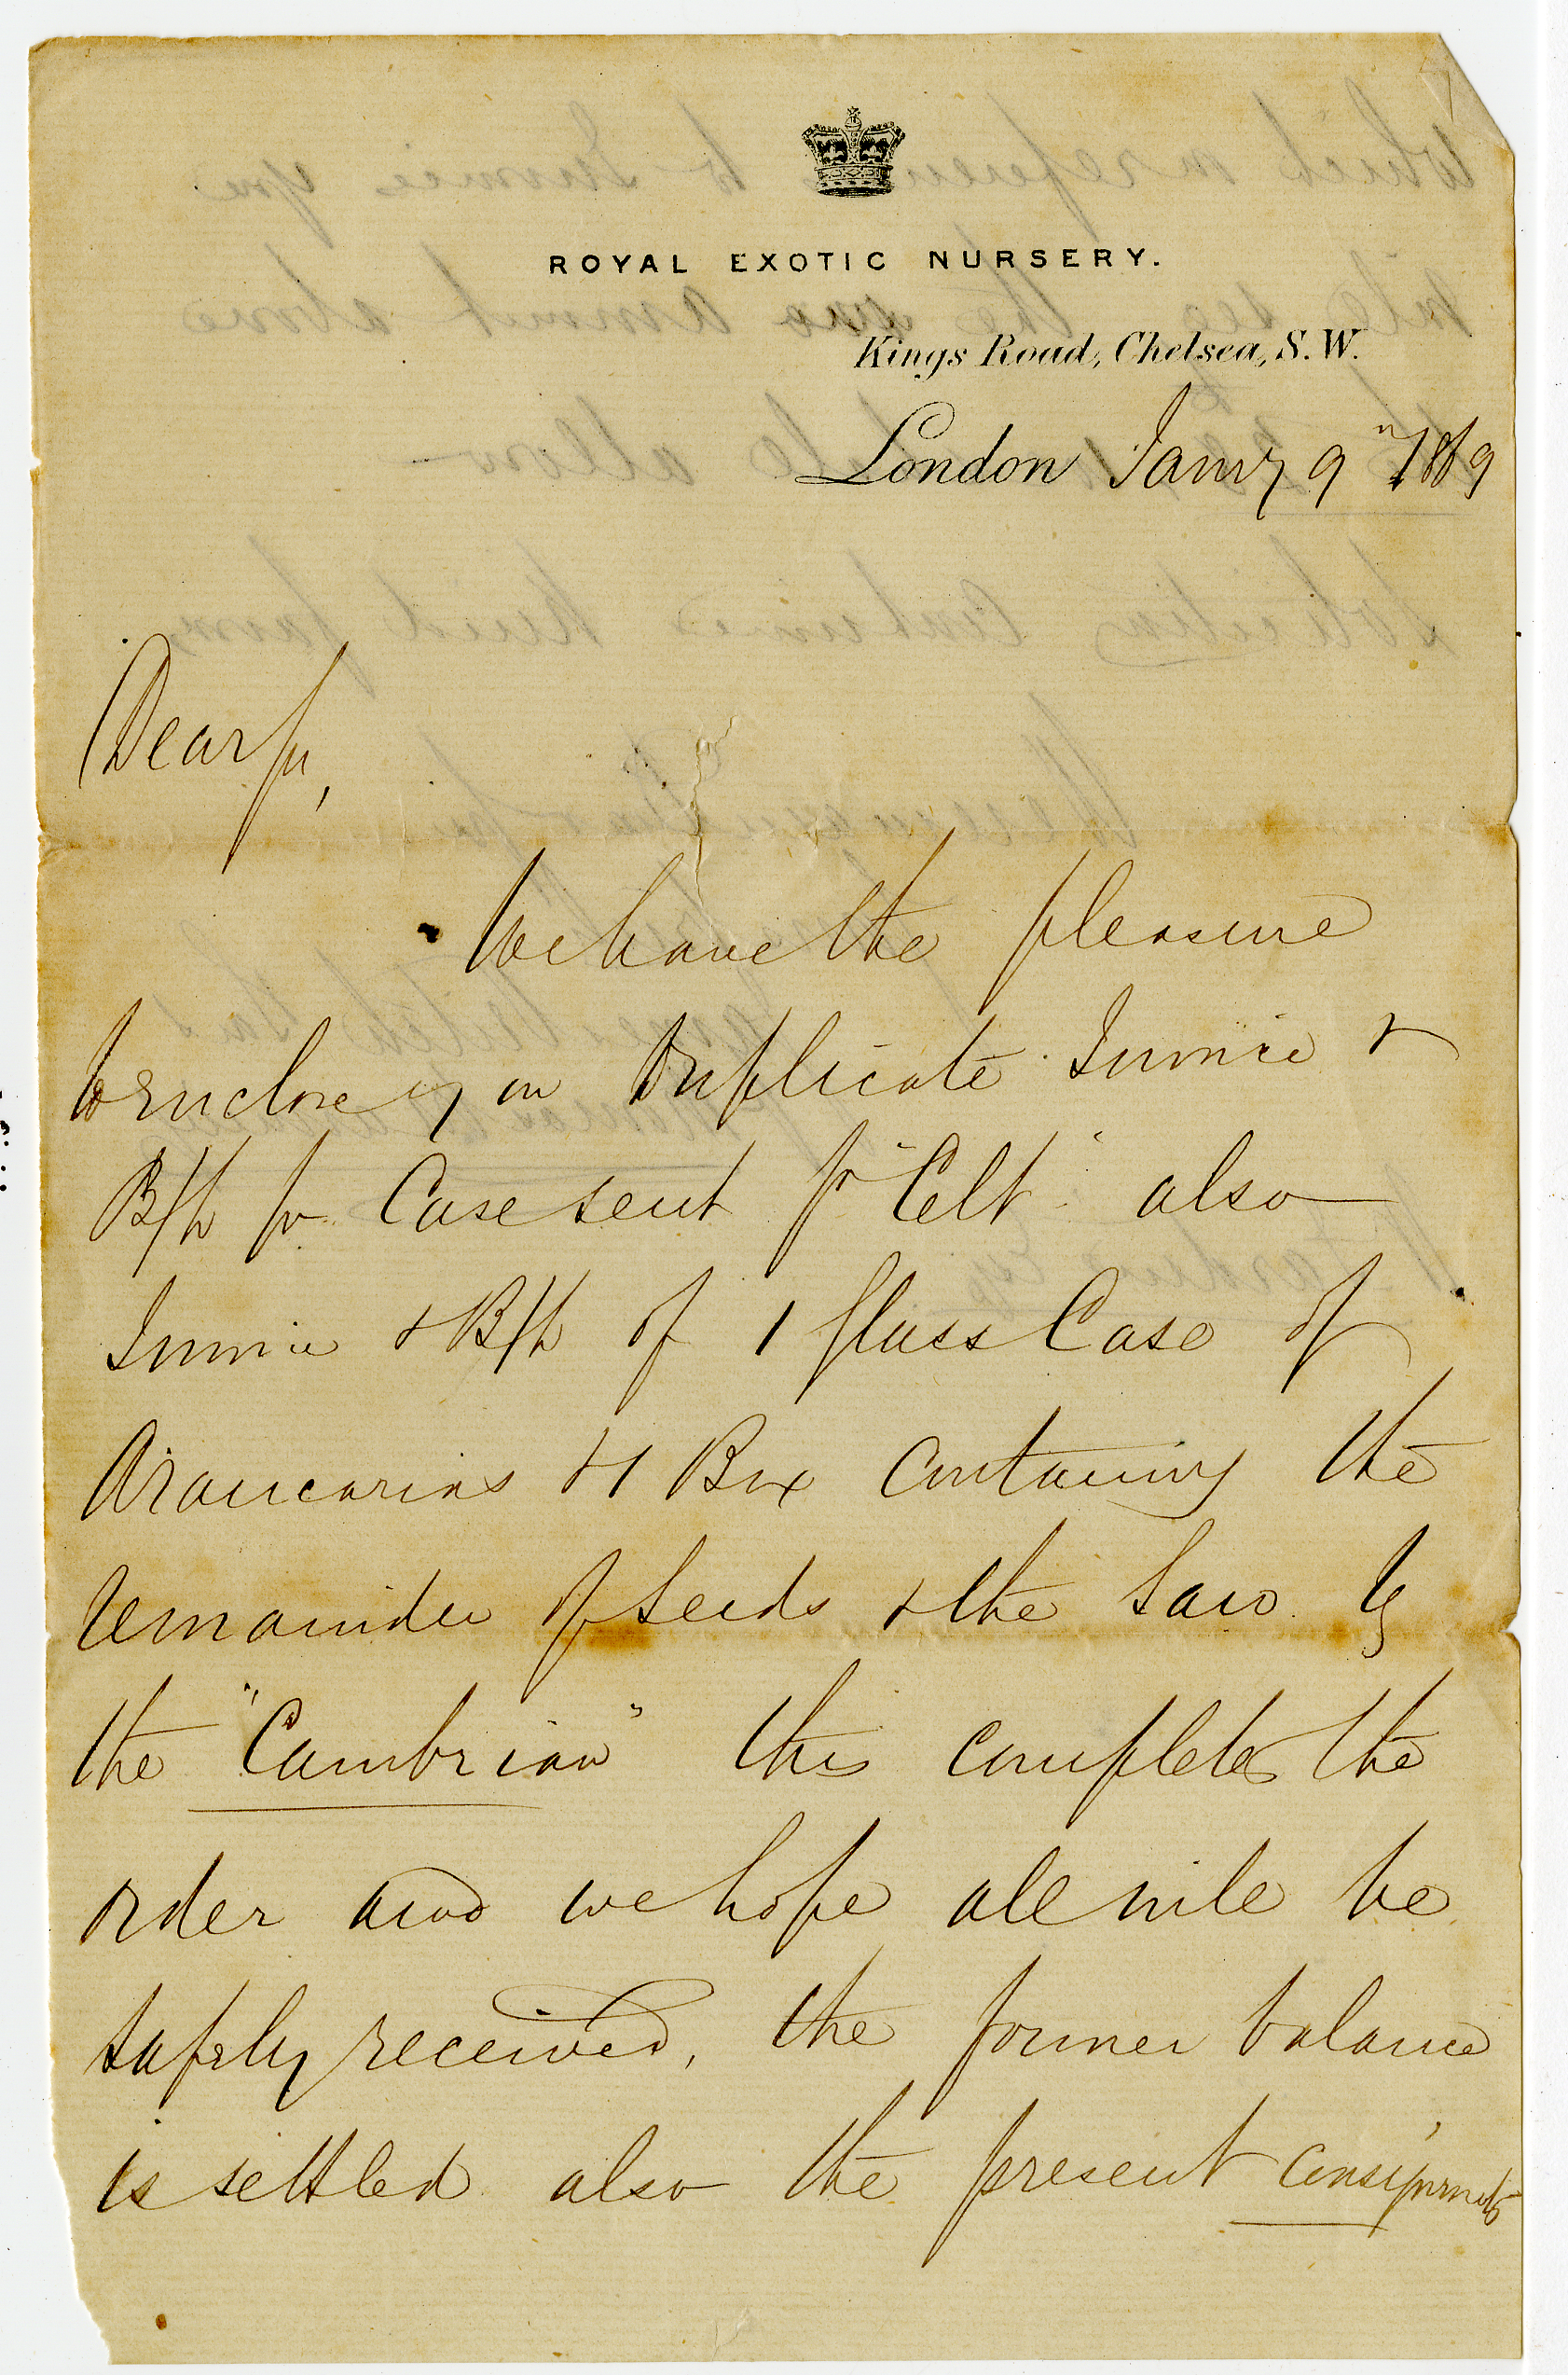 ROYAL EXOTIC NURSERY.
Kings Road, Chelsea, S.W.
London Jany 9th 1869
Dear Sir,
We have the pleasure
to enclose you Duplicate Invoice &
B/L for Case sent pr "Celt" also
Invoice & B/L of 1 glass Case of
Araucarias & 1 Box containing the
remainder of Seeds & the Saw by
the "Cambrian" this completes the
order and we hope all will be
safely received, the former balance
is settled also the present consignmts